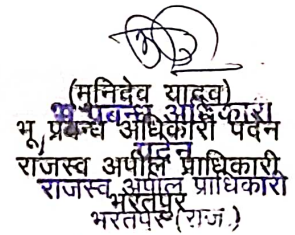 (मुनिदेव यादव)
भू प्रबन्ध अधिकारी
भू प्रबन्ध अधिकारी पदेन
पदेन
राजस्व अपील प्राधिकारी
राजस्व अपील प्राधिकारी
भरतपुर
भरतपुर (राज.)